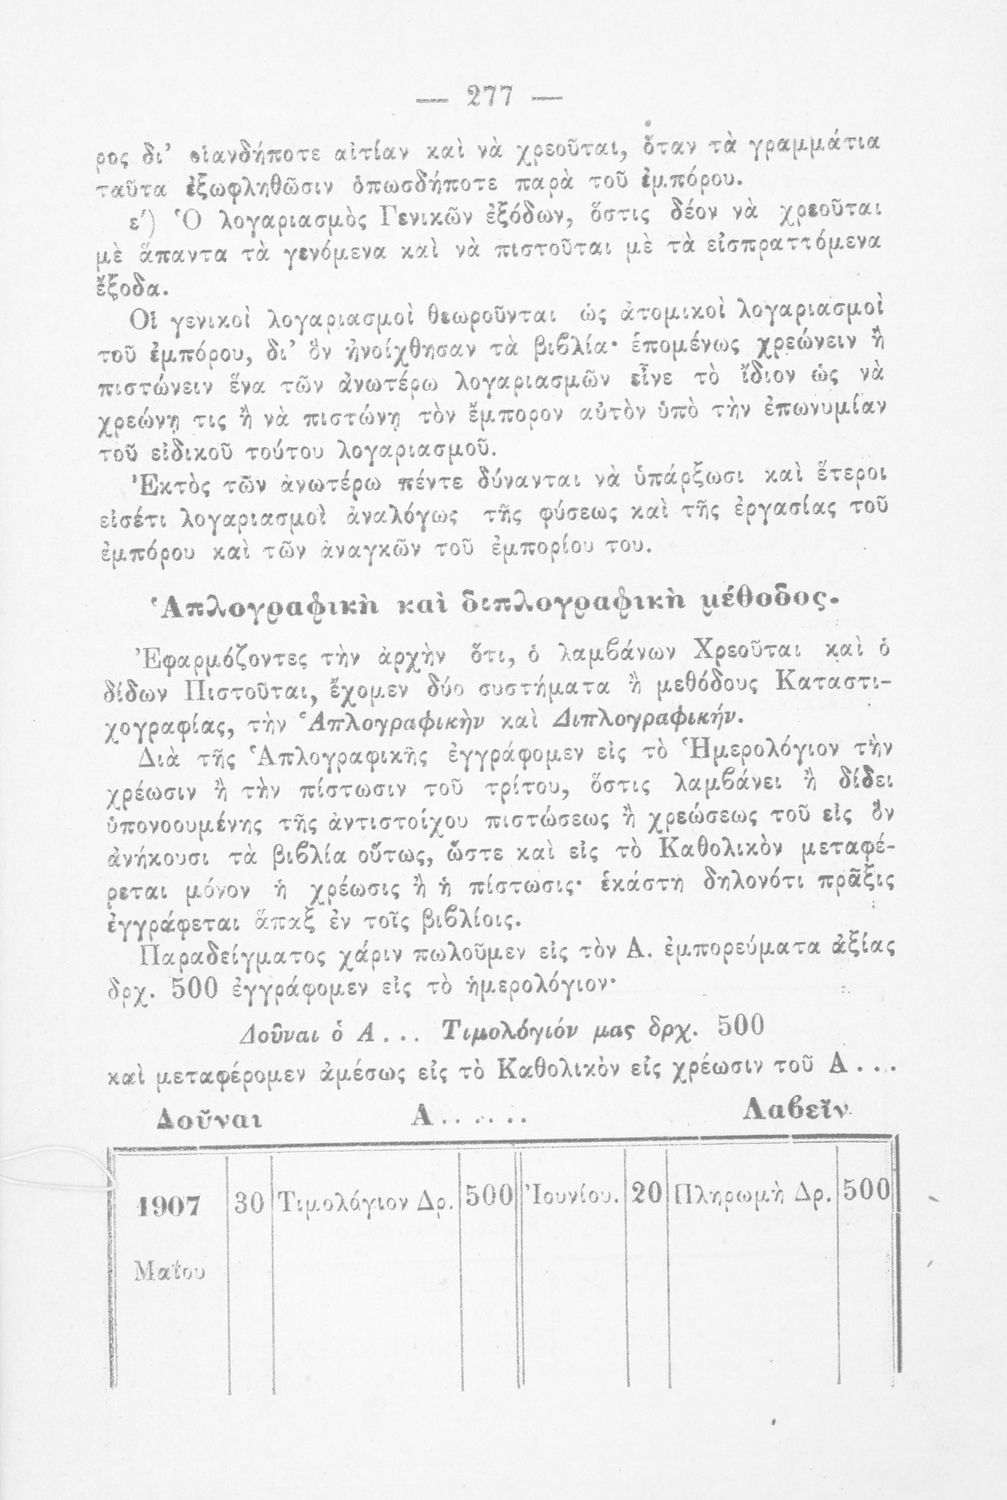 — 277 —
ρος δι' οἱανδήποτε αἰτίαν καὶ νὰ χρεοῦται, ὅταν τὰ γραμμάτια
ταῦτα ἐξωφληθῶσιν ὁπωσδήποτε παρὰ τοῦ ἐμπόρου.
ε') Ὁ λογαριασμὸς Γενικῶν ἐξόδων, ὅστις δέον νὰ χρεοῦται
μὲ ἅπαντα τὰ γενόμενα καὶ νὰ πιστοῦται μὲ τὰ εἰσπραττόμενα
ἔξοδα.
Οἱ γενικοὶ λογαριασμοὶ θεωροῦνται ὡς ἀτομικοὶ λογαριασμοὶ
τοῦ ἐμπόρου, δι' ὃν ἠνοίχθησαν τὰ βιβλία· ἑπομένως χρεώνειν ἢ
πιστώνειν ἕνα τῶν ἀνωτέρω λογαριασμῶν εἶνε τὸ ἴδιον ὡς νὰ
χρεώνῃ τις ἢ νὰ πιστώνῃ τὸν ἔμπορον αὐτὸν ὑπὸ τὴν ἐπωνυμίαν
τοῦ εἰδικοῦ τούτου λογαριασμοῦ.
Ἐκτὸς τῶν ἀνωτέρω πέντε δύνανται νὰ ὑπάρξωσι καὶ ἕτεροι
εἰσέτι λογαριασμοὶ ἀναλόγως τῆς φύσεως καὶ τῆς ἐργασίας τοῦ
ἐμπόρου καὶ τῶν ἀναγκῶν τοῦ ἐμπορίου του.
Ἁπλογραφικὴ καὶ διπλογραφικὴ μέθοδος.
Ἐφαρμόζοντες τὴν ἀρχὴν ὅτι, ὁ λαμβάνων Χρεοῦται καὶ ὁ
δίδων Πιστοῦται, ἔχομεν δύο συστήματα ἢ μεθόδους Καταστι-
χογραφίας, τὴν Ἁπλογραφικὴν καὶ Διπλογραφικήν.
Διὰ τῆς Ἁπλογραφικῆς ἐγγράφομεν εἰς τὸ Ἡμερολόγιον τὴν
χρέωσιν ἢ τὴν πίστωσιν τοῦ τρίτου, ὅστις λαμβάνει ἢ δίδει
ὑπονοουμένης τῆς ἀντιστοίχου πιστώσεως ἢ χρεώσεως τοῦ εἰς ὃν
ἀνήκουσι τὰ βιβλία οὕτως, ὥστε καὶ εἰς τὸ Καθολικὸν μεταφέ-
ρεται μόνον ἡ χρέωσις ἢ ἡ πίστωσις· ἑκάστη δηλονότι πρᾶξις
ἐγγράφεται ἅπαξ ἐν τοῖς βιβλίοις.
Παραδείγματος χάριν πωλοῦμεν εἰς τὸν Α. ἐμπορεύματα ἀξίας
δρχ. 500 ἐγγράφομεν εἰς τὸ ἡμερολόγιον·
Δοῦναι ὁ Α... Τιμολόγιόν μας δρχ. 500
καὶ μεταφέρομεν ἀμέσως εἰς τὸ Καθολικὸν εἰς χρέωσιν τοῦ Α...
Δοῦναι Α...... Λαβεῖν
1907 30 Τιμολόγιον Δρ. 500 Ἰουνίου. 20 Πληρωμὴ Δρ. 500
Μαΐου